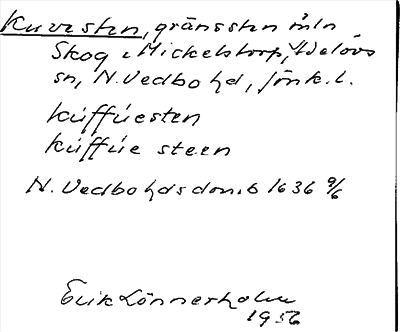 Kuvesten, gränssten mln
Skog o Mickelstorp, Adelövs
sn, N. Vedbo hd, Jönk. l.
kúffúesten
kúffúe steen
N. Vedbo hds domb 1636 9/6
Erik Lönnerholm
1956